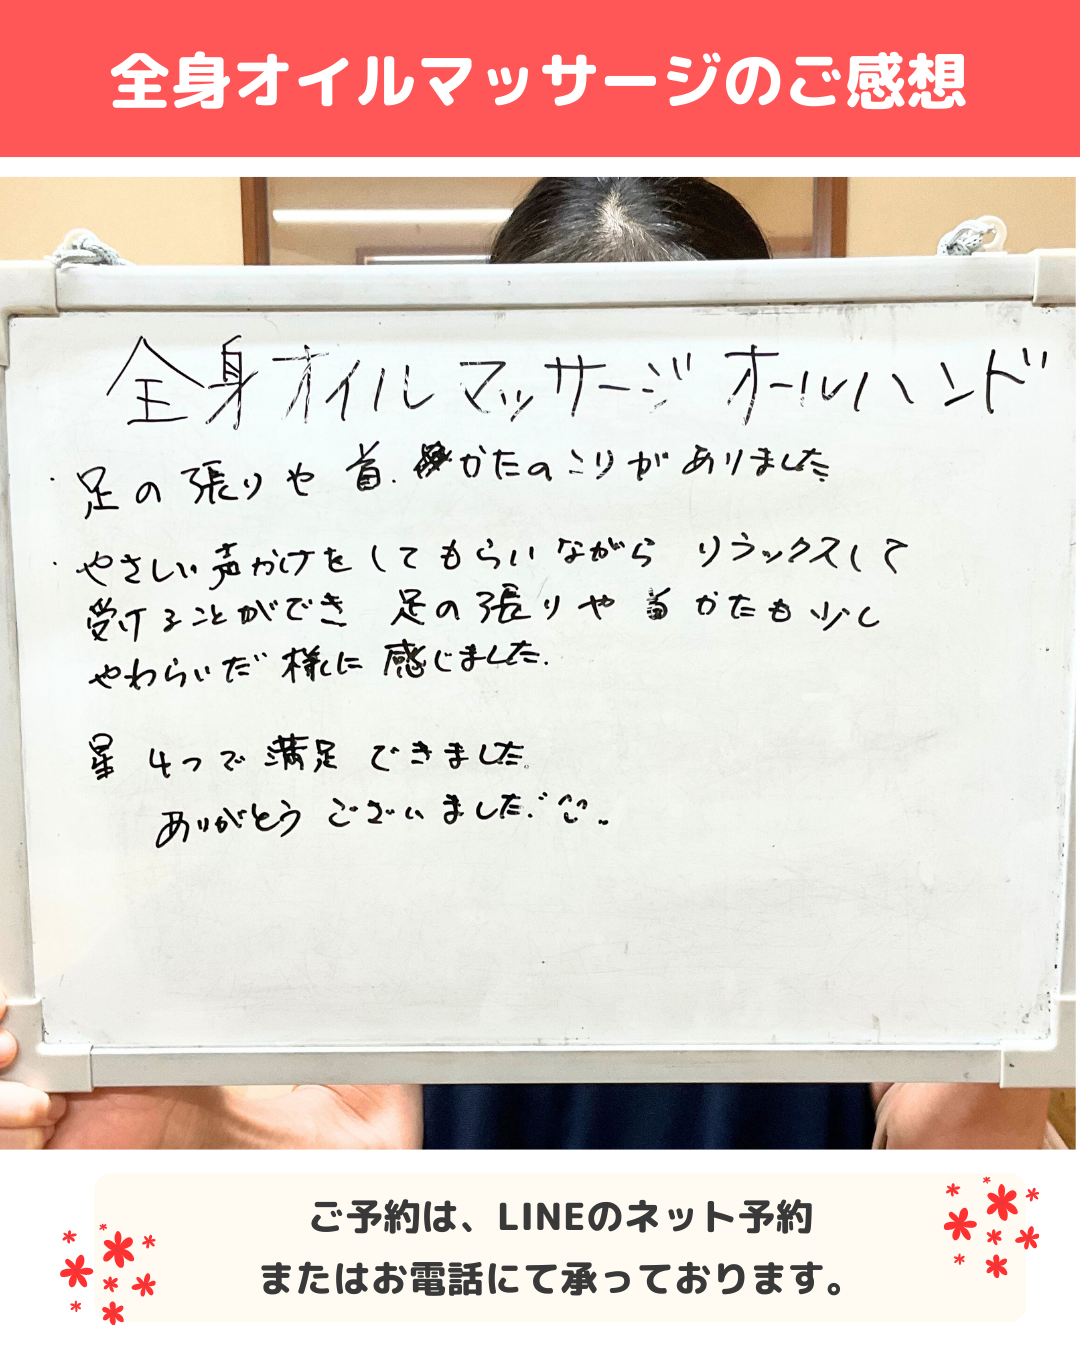 全身オイルマッサージのご感想
全身オイルマッサージ オールハンド
・足の張りや首.かたのこりがありました
・やさしい声かけをしてもらいながら リラックスして
受けることができ 足の張りや首かたも少し
やわらいだ様に感じました.
星 4つで満足できました。
ありがとうございました.
ご予約は、LINEのネット予約
またはお電話にて承っております。